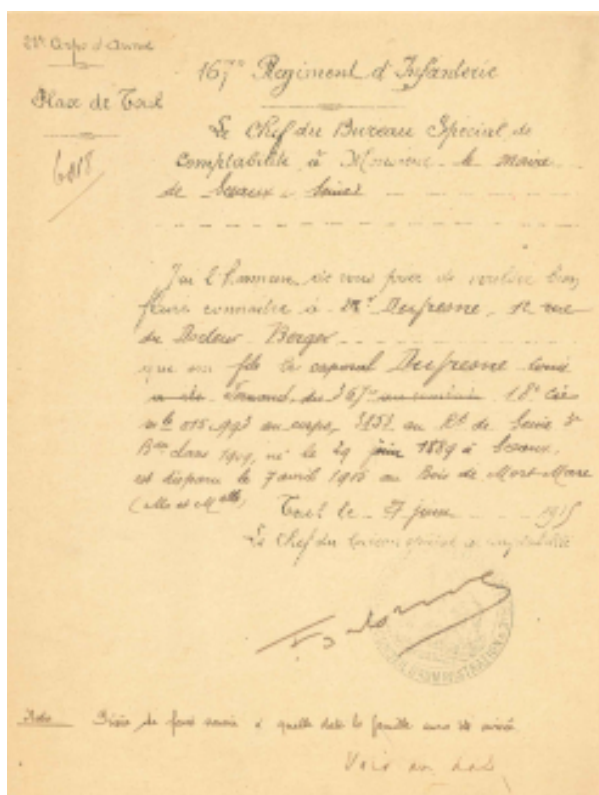 Corps d'Armée
Place de Toul
6018
167e Régiment d'Infanterie
Le Chef du Bureau Spécial de
comptabilité à Monsieur le maire
de Sceaux Seine
J'ai l'honneur de vous prier de vouloir bien
faire connaître à Mr Dufresne, 12 rue
du Docteur Berger
que son fils le caporal Dufresne Louis
Fernand, du 167e 18e Cie
au corps, au Rt de Seine 3e
Bau classe 1909, né le 29 juin 1889 à Sceaux,
est disparu le 7 avril 1915 au Bois de Mort-Mare
(Mthe et Mlle)
Toul le 27 juin 1915
Le Chef du bureau spécial de comptabilité
Nota Prière de faire savoir à quelle date la famille aura été avisée